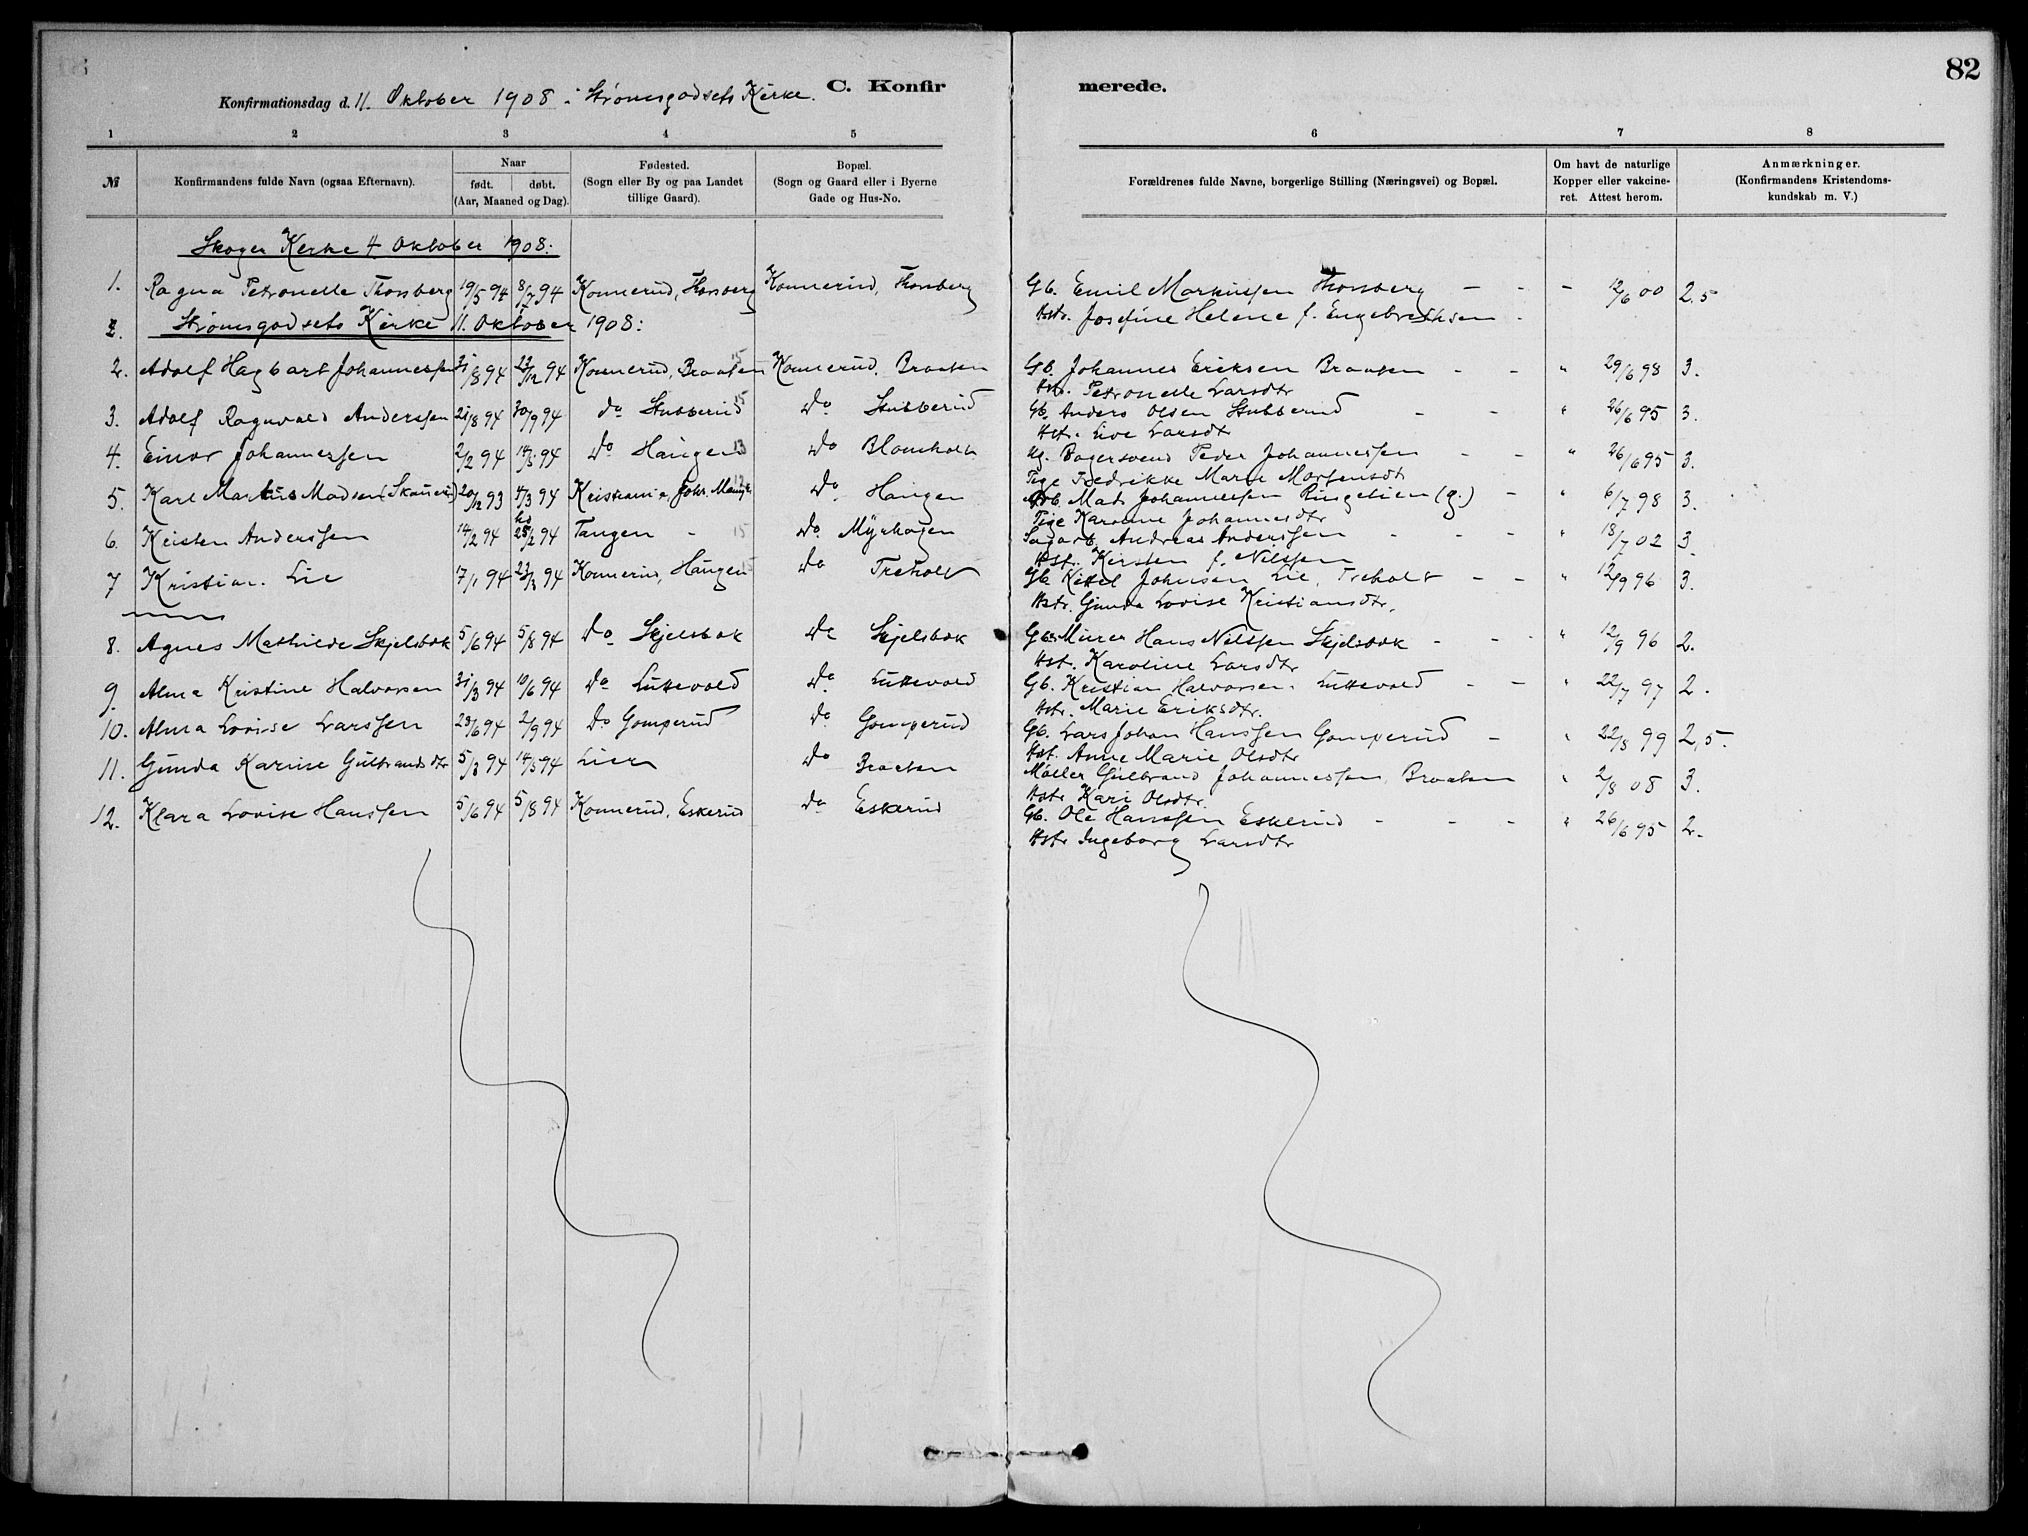 82
C. Konfirmerede.
Konfirmationsdag d. 11. Oktober 1908 i Strømsgodsets Kirke.
1 2 3 4 5 6 7 8
№ Konfirmandens fulde Navn (ogsaa Efternavn). Naar født. døbt. (Aar, Maaned og Dag). Fødested. (Sogn eller By og paa Landet tillige Gaard). Bopæl. (Sogn og Gaard eller i Byerne Gade og Hus-No. Forældrenes fulde Navne, borgerlige Stilling (Næringsvei) og Bopæl. Om havt de naturlige Kopper eller vakcineret. Attest herom. Anmærkninger. (Konfirmandens Kristendomskundskab m. V.)
Skoger Kirke 4 Oktober 1908:
1. Ragna Petronelle Thorsberg 19/5 94 8/7 94 Konnerud, Thorsberg Konnerud, Thorsberg Gb. Emil Markussen Thorsberg - - - 12/6 00 2,5
Hstr. Josefine Helene f. Engebrethsen
Strømsgodsets Kirke 11. Oktober 1908:
2. Adolf Hagbart Johannessen 31/8 94 23/12 94 Konnerud, Braaten 15 Konnerud, Braaten Gb. Johannes Eriksen Braaten - - " 29/6 98 3.
Hstr. Petronelle Larsdtr
3. Adolf Ragnvald Anderssen 21/8 94 30/9 94 do Stubberud 15 Do Stubberud Gb. Anders Olsen Stubberud - - " 26/6 95 3.
Hstr. Live Larsdt
4. Einar Johannessen 2/2 94 14/5 94 Do Haugen 13 Do Blomholt Ug. Bagersvend Peder Johannessen - - " 26/6 95 3.
Pige Fredrikke Marie Mortensdt
5. Karl Martius Madsen 20/12 93 4/3 94 Kristiania, Joh. Do Haugen Arb. Mads Johannessen Ringelien (g.) - " 6/7 98 3.
Pige Karoline Johannesdtr
6. Kristen Anderssen 14/2 94 25/2 94 Tangen - 15 Do Myrhagen Sagarb. Andreas Anderssen - - - " 18/7 02 3.
Hst. Kirsten f. Nilssen
7 Kristian Lie 17/1 94 23/3 94 Konnerud, Haugen 15 Do Treholt Gb. Kittel Johnsen Lie, Treholt - - " 12/9 96 3.
Hstr. Gunda Lovise Kristiansdtr.
8. Agnes Mathilde Skjelsbæk 5/6 94 5/8 94 Do Skjelsbæk Do Skjelsbæk Murer Hans Nilssen Skjelsbæk - - " 12/9 96 2.
Hst. Karoline Larsdtr
9. Alma Kristine Halvorsen 31/3 94 10/6 94 Do Luttevold Do Luttevold Gb. Kristian Halvorsen Luttevold - - " 22/7 97 2.
Hstr. Marie Eriksdtr.
10. Alma Lovise Larssen 23/6 94 2/9 94 Do Gomperud Do Gomperud Gb. Lars Johan Hanssen Gomperud - " 22/8 99 2,5.
Hst. Anne Marie Olsdtr
11. Gunda Karine Gulbrandsdtr 5/3 94 14/5 94 Lier Do Braaten Møller Gulbrand Johannessen, Braaten " 2/8 08 3.
Hstr Kari Olsdtr.
12. Klara Lovise Hanssen 5/6 94 5/8 94 Konnerud, Eskerud Do Eskerud Gb. Ole Hanssen Eskerud - - - " 26/6 95 2.
Hstr Ingeborg Larsdtr